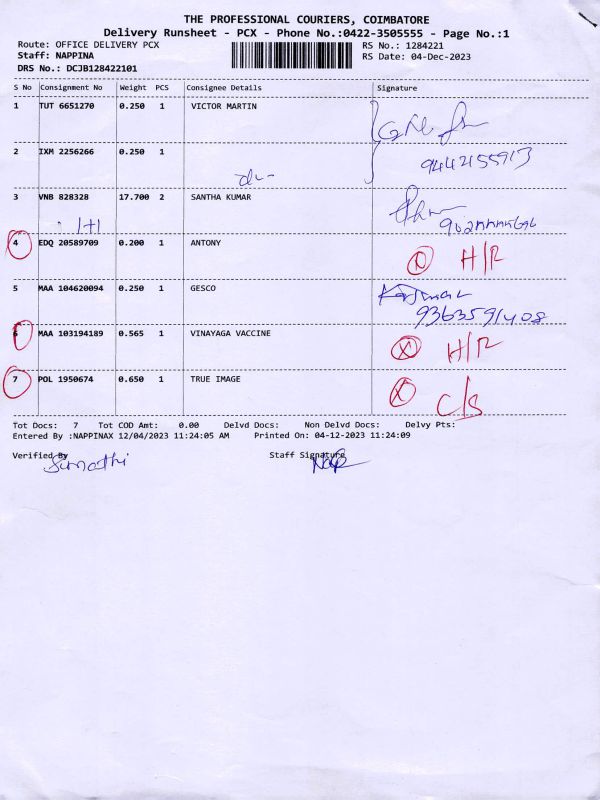 THE PROFESSIONAL COURIERS, COIMBATORE
Delivery Runsheet - PCX - Phone No.:0422-3505555 - Page No.:1
Route: OFFICE DELIVERY PCX
RS No.: 1284221
Staff: NAPPINA
RS Date: 04-Dec-2023
DRS No.: DCJB128422101
S No Consignment No Weight PCS Consignee Details Signature
1 TUT 6651270 0.250 1 VICTOR MARTIN
2 IXM 2256266 0.250 1
9442155913
3 VNB 828328 17.700 2 SANTHA KUMAR
4 EDQ 20589709 0.200 1 ANTONY H/R
5 MAA 104620094 0.250 1 GESCO
9363591408
6 MAA 103194189 0.565 1 VINAYAGA VACCINE H/R
7 POL 1950674 0.650 1 TRUE IMAGE C/S
Tot Docs: 7 Tot COD Amt: 0.00 Delvd Docs: Non Delvd Docs: Delvy Pts:
Entered By :NAPPINAX 12/04/2023 11:24:05 AM Printed On: 04-12-2023 11:24:09
Verified By Staff Signature
Sumathi